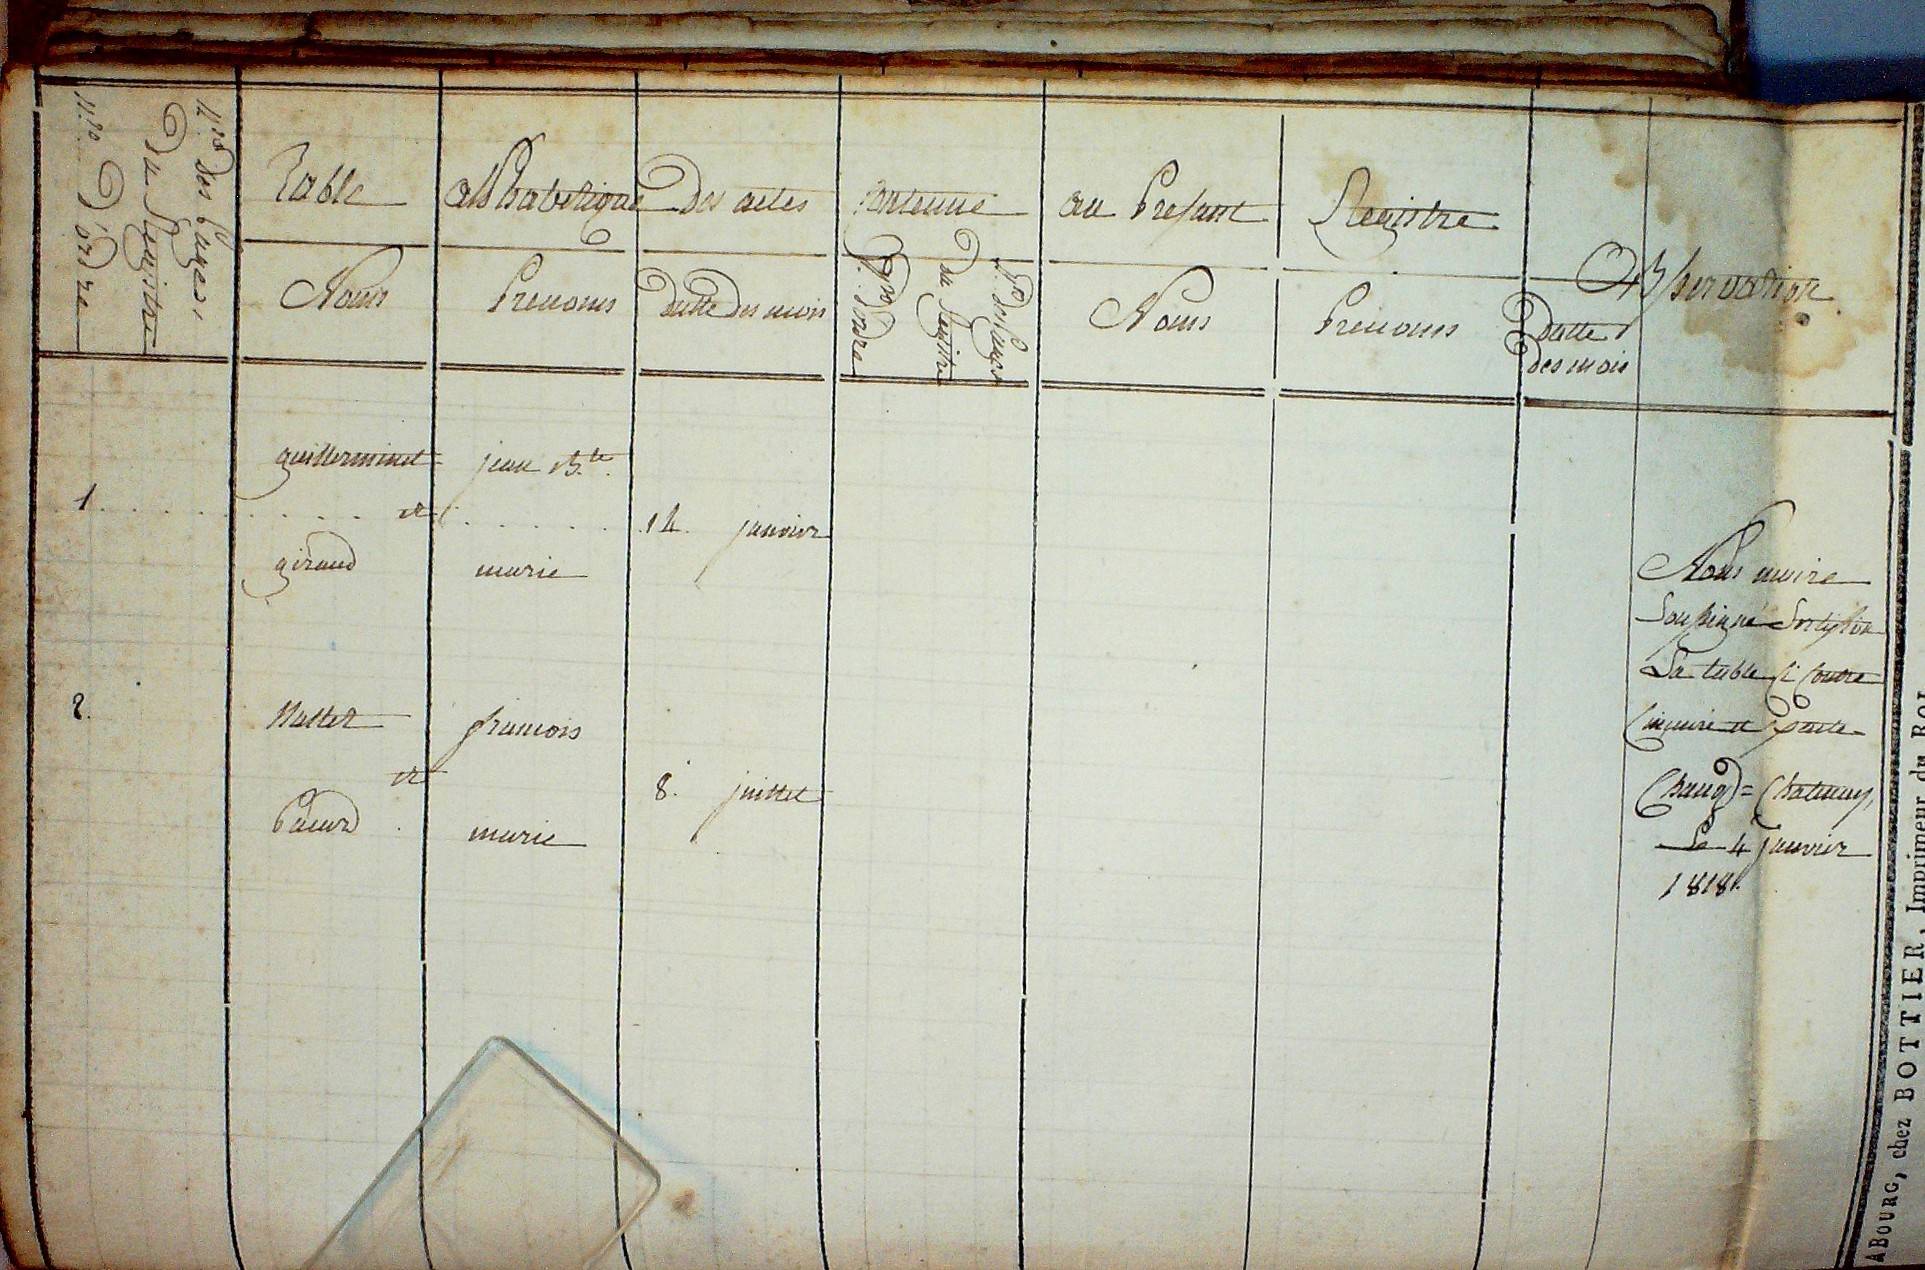 N.ro D'ordre
N.ro des pages
Du Registre
Table alphabetique Des actes contenue au present Registre
Noms Prenoms datte des mois
N.ro d'ordre
N.ro des pages
du Registre
Noms Prenoms Datte
des mois
Observation
guillerminet jean B.te
1 et 14 janvier
giraud marie
2. Mallet francois
et 8. juillet
marie
Nous maire
soussigné
La table ci contre
sincaire et
Chatenay,
Le 4 janvier
1818.
A BOURG, chez BOTTIER, Imprimeur du ROI